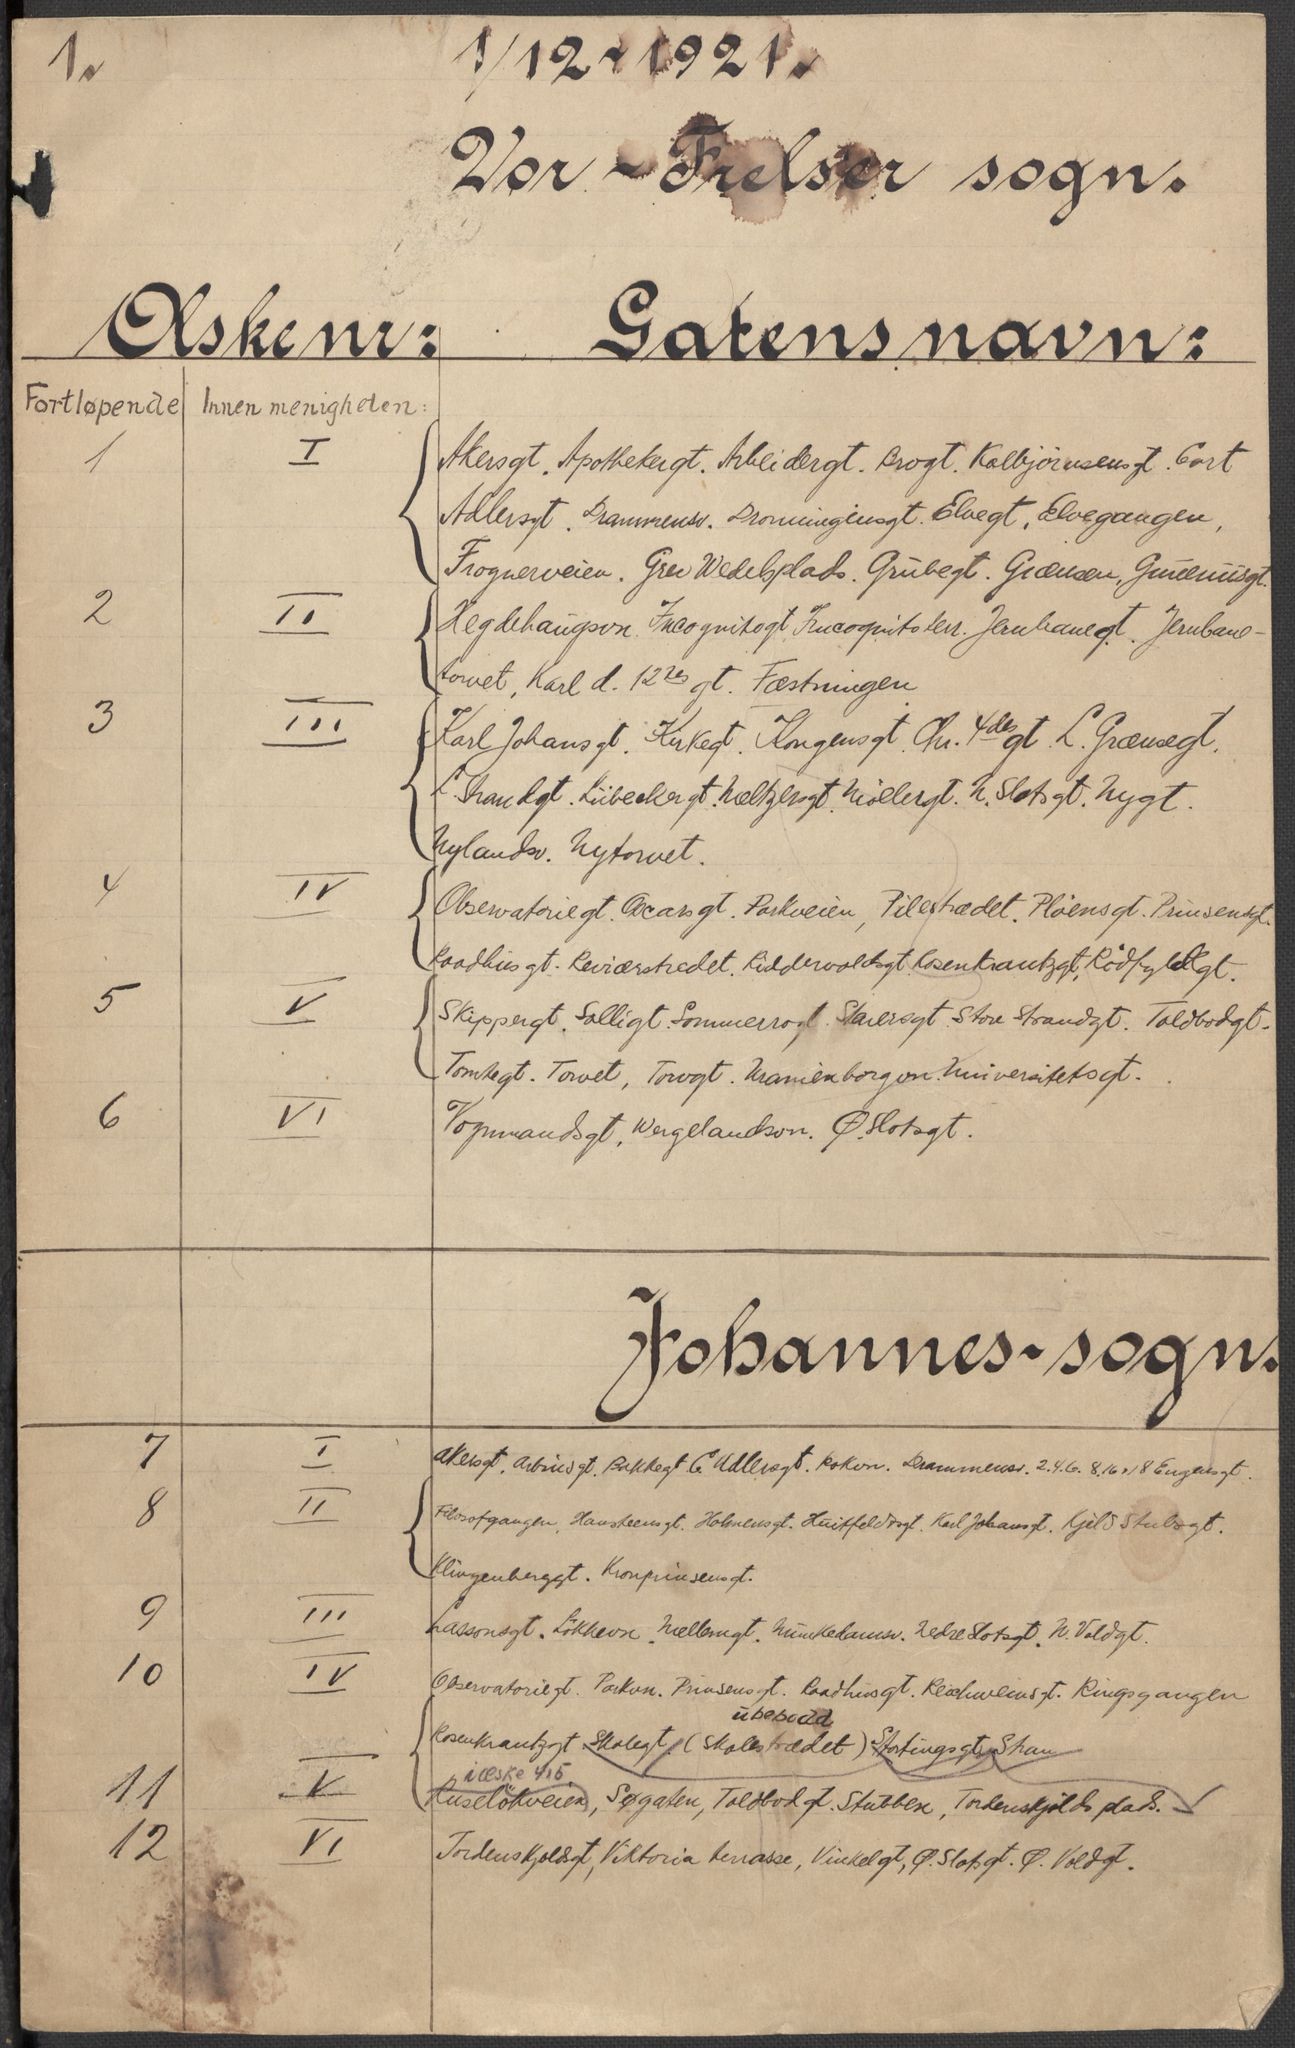 1.
1/12 - 1921.
Vor - Frelser sogn.
Æskenr: Gatens navn:
Fortløpende Innen menigheten:
1 I Akersgt. Apothekergt. Arbeidergt. Brogt. Kalbjörnsensgt. Cort
Adlersgt. Drammensv. Dronningensgt. Elvegt, Elvegangen,
Frognerveien. Grev Wedelsplads. Grubegt. Grænsen,
2 II Hegdehaugsvn Incognitogt Incognito terr. Jernbanegt. Jernbane-
torvet, Karl d. 12tes gt. Fæstningen
3 III Karl Johansgt. Kirkegt. Kongensgt. Chr. 4des gt L. Grænsegt.
L. Strandgt. Lübeckergt. Meltzersgt. Möllergt. N. Slotsgt. Nygt.
Nylandsv. Nytorvet.
4 IV Observatoriegt. Oscarsgt. Parkveien, Pilestrædet. Plöensgt. Prinsensgt.
Raadhusgt. Revierstredet. Riddervoldsgt. Rosenkrantzgt, Rödfyldgt.
5 V Skippergt. Solligt. Sommerrogt. Stenersgt. Store Strandgt. Toldbodgt.
Tomtegt. Torvet, Torvgt. Uranienborgvn. Universitetsgt.
6 VI Vognmandsgt, Wergelandsvn. Ø. Slotsgt.
Johannes-sogn.
7 I Akersgt. Arbinsgt. Bakkegt. C. Adlersgt. Dokvn. Drammensv. 2.4.6. 8.16.18 Engensgt.
8 II Filosofgangen, Hansteensgt. Holmensgt. Huitfeldsgt. Karl Johansgt. Kjeld Stubsgt.
Klingenberggt. Kronprinsensgt.
9 III Lassonsgt. Lökkevn. Mellemgt. Munkedamsv. Nedre Slotsgt. N. Voldgt.
10 IV Observatoriegt. Parkvn. Prinsensgt. Raadhusgt. Reichweinsgt. Ringsgangen
ubebodd
Rosenkrantzgt Skolegt. (Skolestrædet) Stortingsgt, Stran
i æske 4,5
11 V Ruselökveien, Søgaten, Toldbodgt. Stubben, Tordenskjolds plads.
12 VI Tordenskjoldsgt, Viktoria terrasse, Vinkelgt, Ø. Slotsgt. Ø. Voldgt.